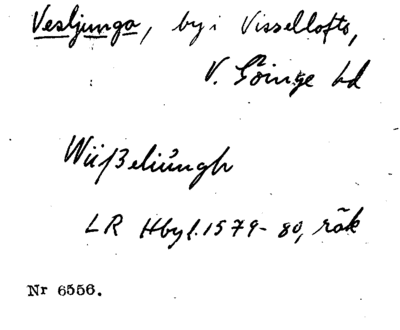 Vesljunga, by i Visseltofta,
V. Göinge hd
Wüßeliúngh
LR Hbyl. 1579-80, räk
Nr 6556.